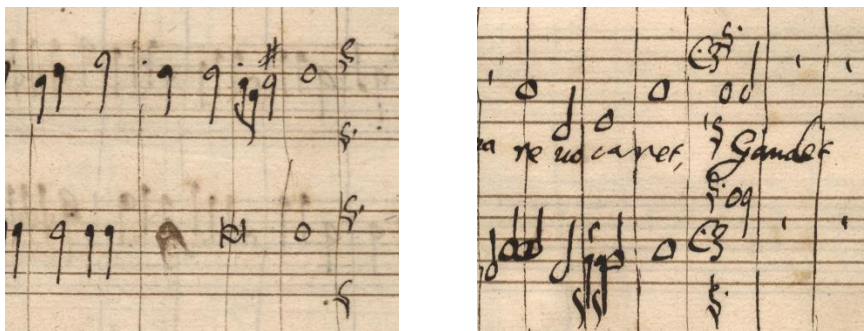 re uo caret, Gaudet